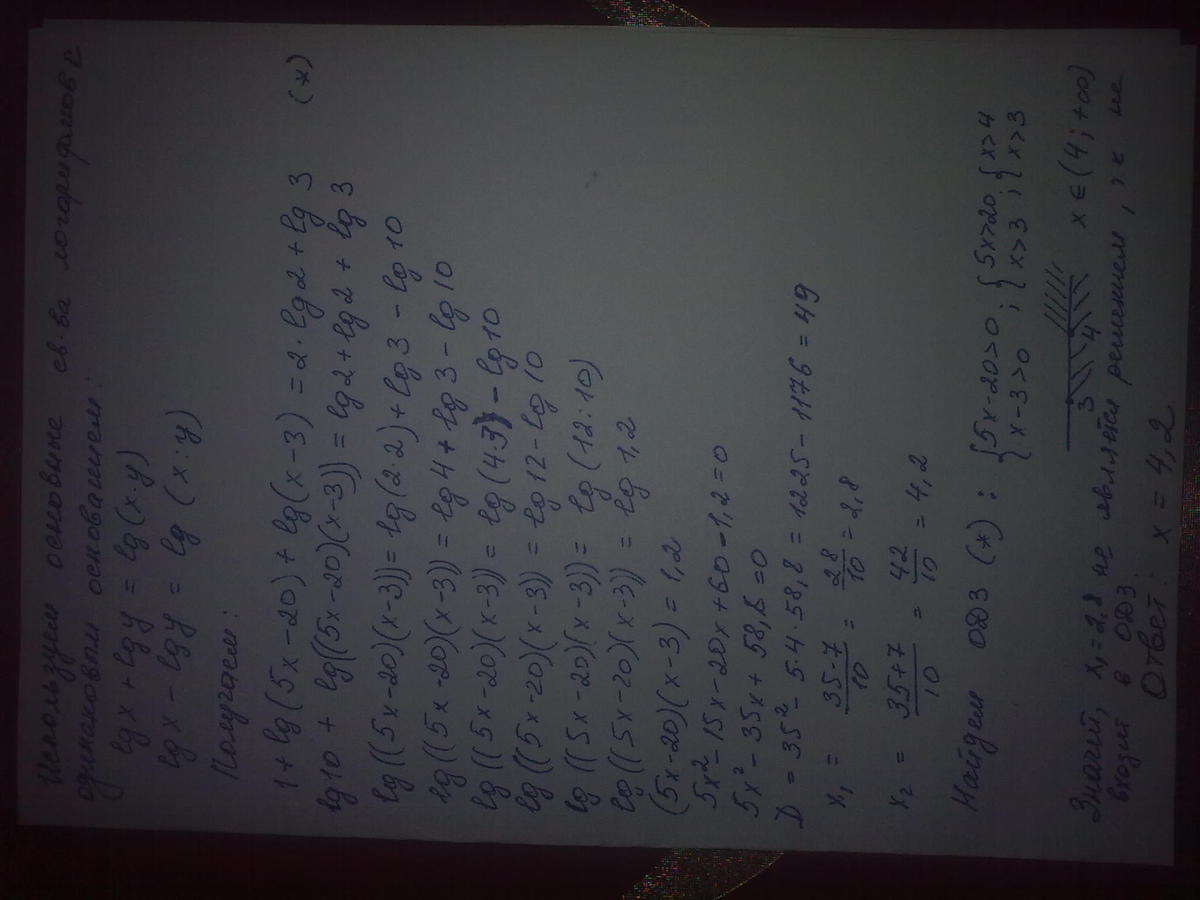 Используем основные св-ва логорифмов с
одинаковым основанием:
lg x + lg y = lg (x·y)
lg x - lg y = lg (x:y)
Получаем:
1 + lg (5x-20) + lg(x-3) = 2·lg 2 + lg 3 (*)
lg 10 + lg((5x-20)(x-3)) = lg 2 + lg 2 + lg 3
lg ((5x-20)(x-3)) = lg (2·2) + lg 3 - lg 10
lg ((5x-20)(x-3)) = lg 4 + lg 3 - lg 10
lg ((5x-20)(x-3)) = lg (4·3) - lg 10
lg ((5x-20)(x-3)) = lg 12 - lg 10
lg ((5x-20)(x-3)) = lg (12:10)
lg ((5x-20)(x-3)) = lg 1,2
(5x-20)(x-3) = 1,2
5x² - 15x - 20x + 60 - 1,2 = 0
5x² - 35x + 58,8 = 0
Д = 35² - 5·4·58,8 = 1225 - 1176 = 49
x₁ = (35-7)/10 = 28/10 = 2,8
x₂ = (35+7)/10 = 42/10 = 4,2
Найдем ОДЗ (*): { 5x-20>0 ; { 5x>20 ; { x>4
{ x-3>0 { x>3 { x>3
3 4 x ∈ (4; +∞)
Значит, x₁ = 2,8 не является решением, т.к не
входит в ОДЗ.
Ответ: x = 4,2